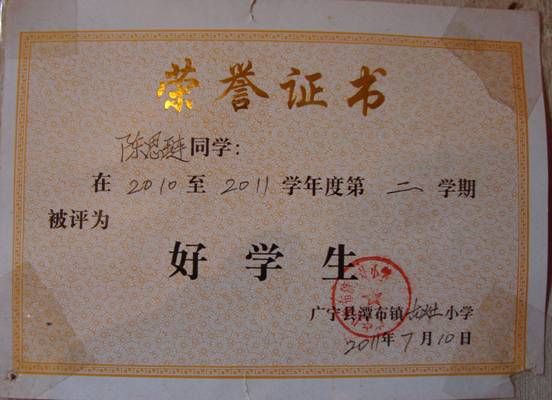 荣誉证书
陈思琏同学：
在2010至2011学年度第二学期
被评为
好学生
广宁县潭布镇小学
2011年7月10日